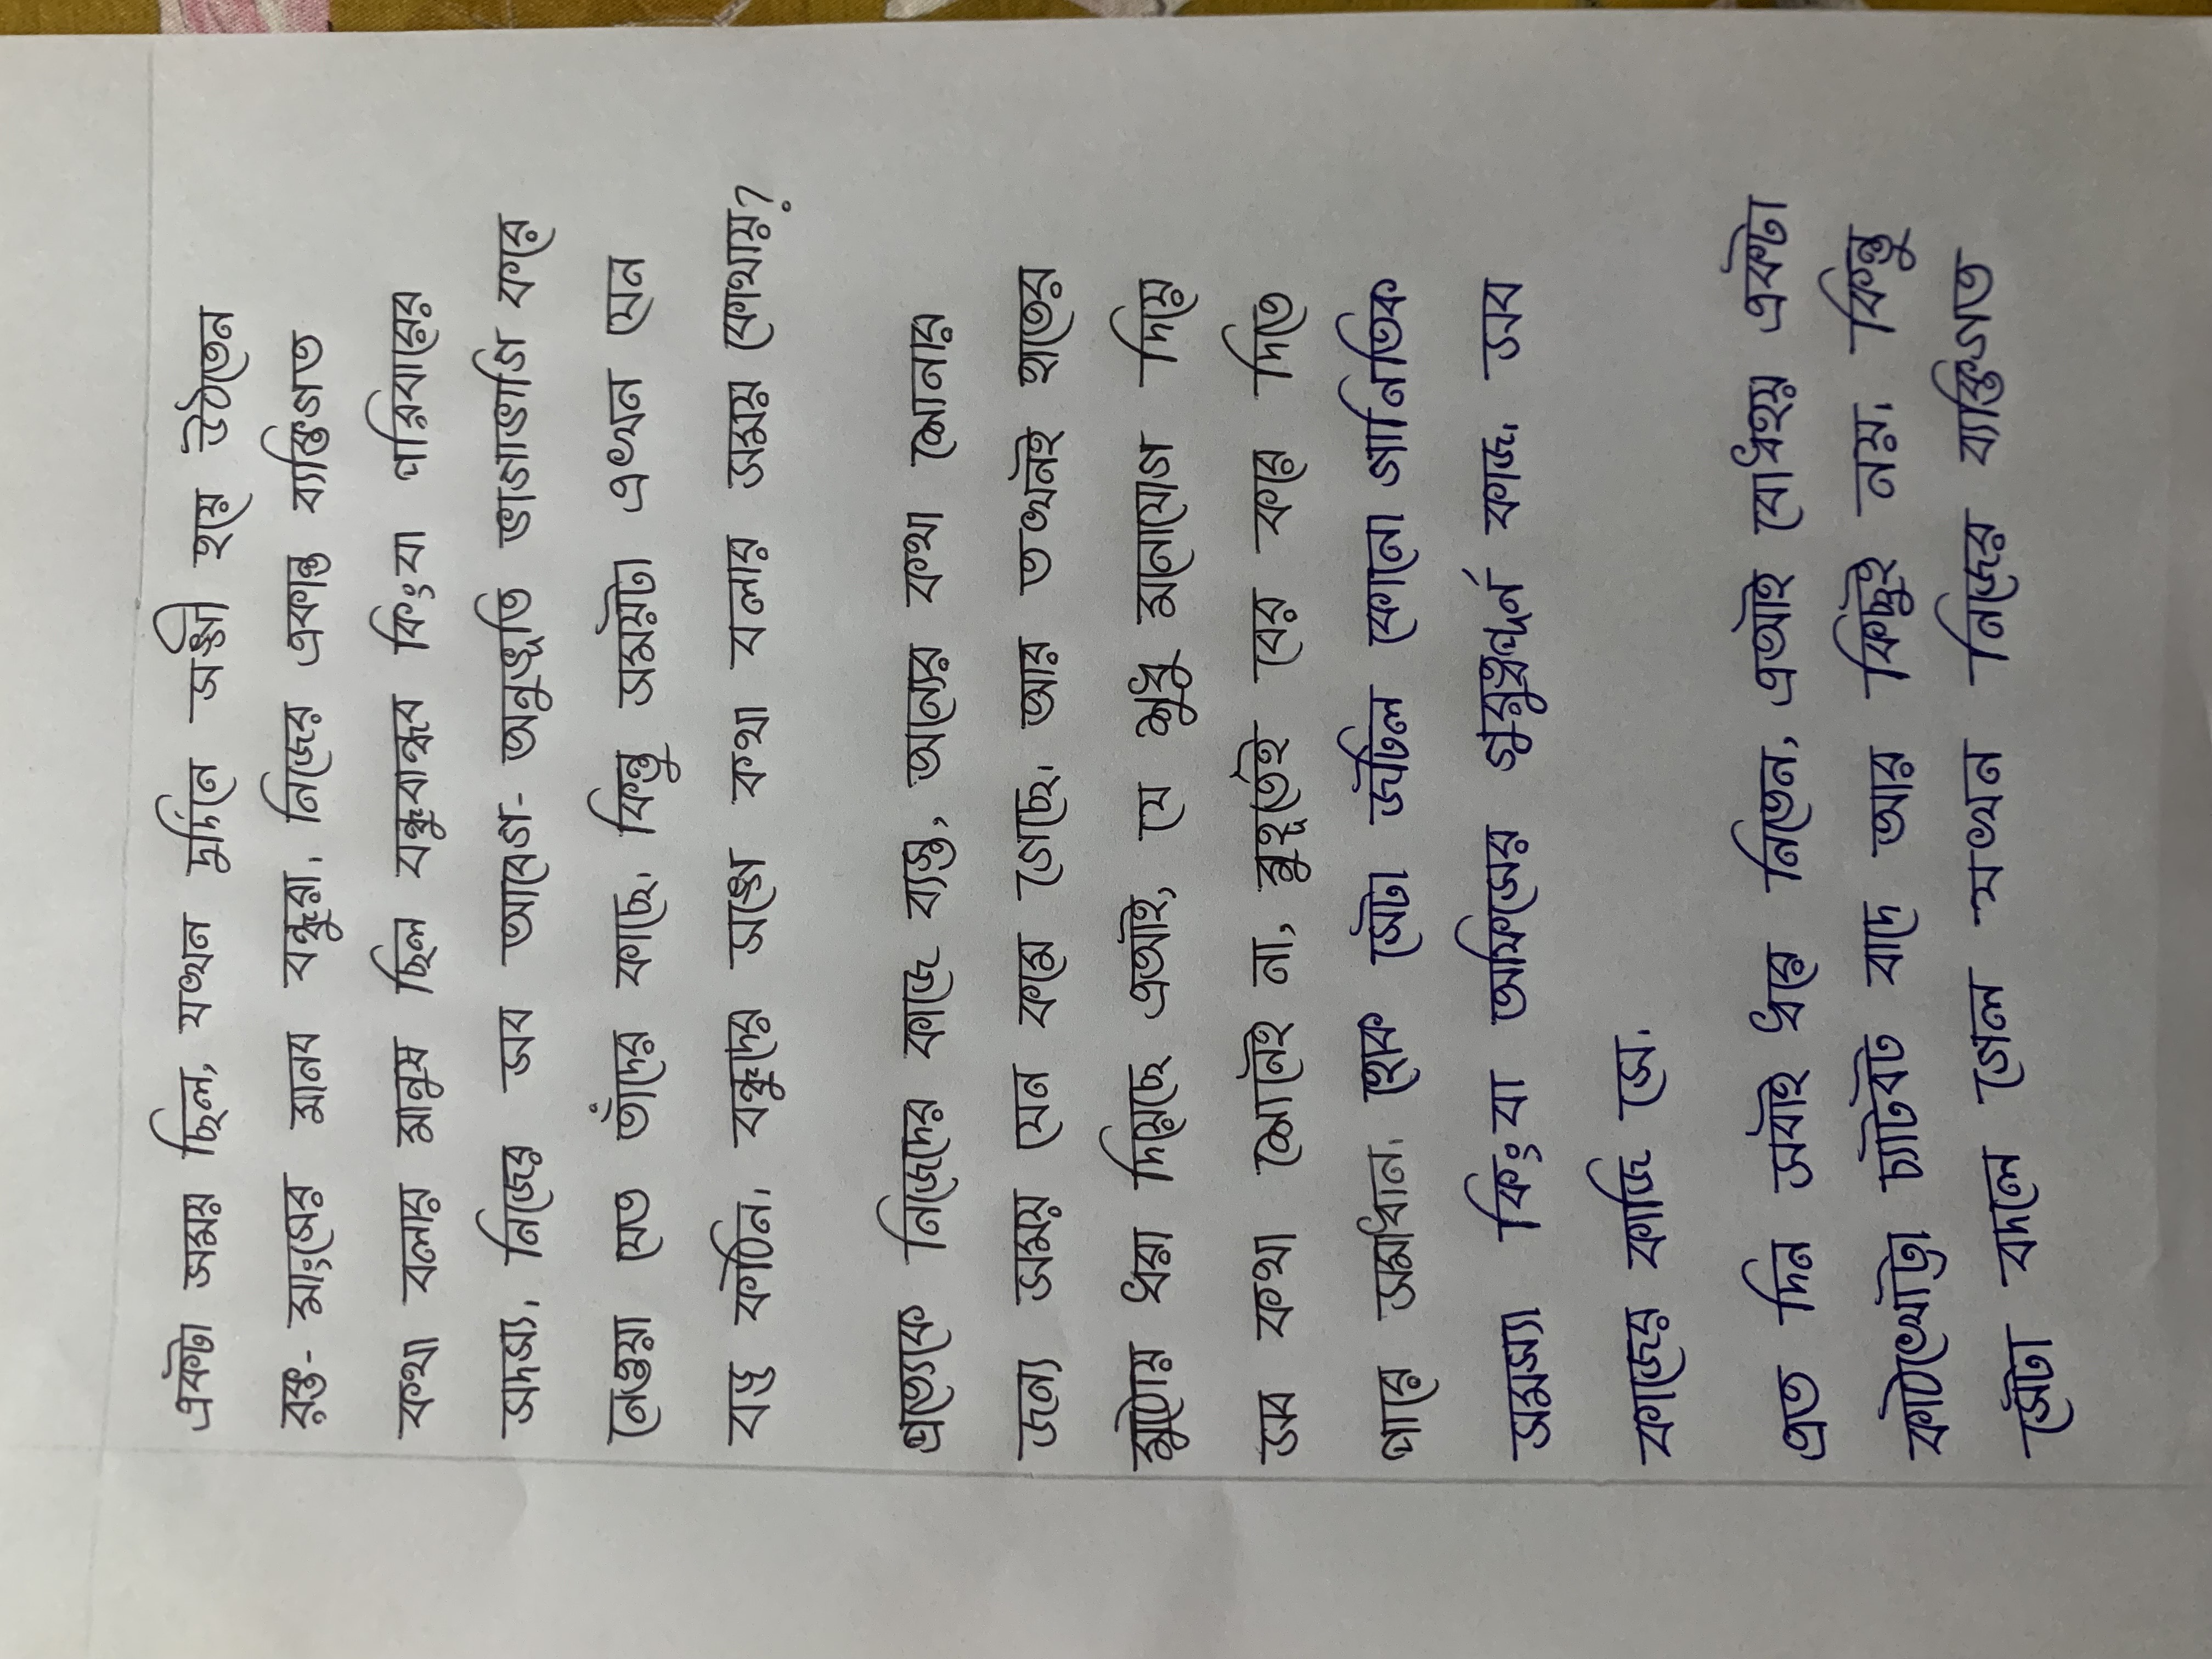 একটা সময় ছিল, যখন দুর্দিনে সঙ্গী হয়ে উঠতেন
রক্ত- মাংসের মানব বন্ধুরা। নিজের একান্ত ব্যক্তিগত
কথা বলার মানুষ ছিল বন্ধুবান্ধব কিংবা পরিবারের
সদস্য। নিজের সব আবেগ- অনুভূতি ভাগাভাগি করে
নেওয়া যেত তাঁদের কাছে। কিন্তু সময়টা এখন যেন
বড্ড কঠিন। বন্ধুদের সঙ্গে কথা বলার সময় কোথায়?
প্রত্যেকে নিজেদের কাজে ব্যস্ত, অন্যের কথা শোনার
জন্য সময় যেন কমে গেছে। আর তখনই হাতের
মুঠোয় ধরা দিয়েছে এআই, যে শুধু মনোযোগ দিয়ে
সব কথা শোনেই না, মুহূর্তেই বের করে দিতে
পারে সমাধান। হোক সেটা জটিল কোনো গানিতিক
সমস্যা কিংবা অফিসের গুরুত্বপূর্ন কাজ। সব
কাজের কাজি সে।
এত দিন সবাই ধরে নিতেন, এআই বোধহয় একটা
কাঠখোট্টা চ্যাটবট বাদে আর কিছুই নয়। কিন্তু
সেটা বদলে গেল যখন নিজের ব্যক্তিগত